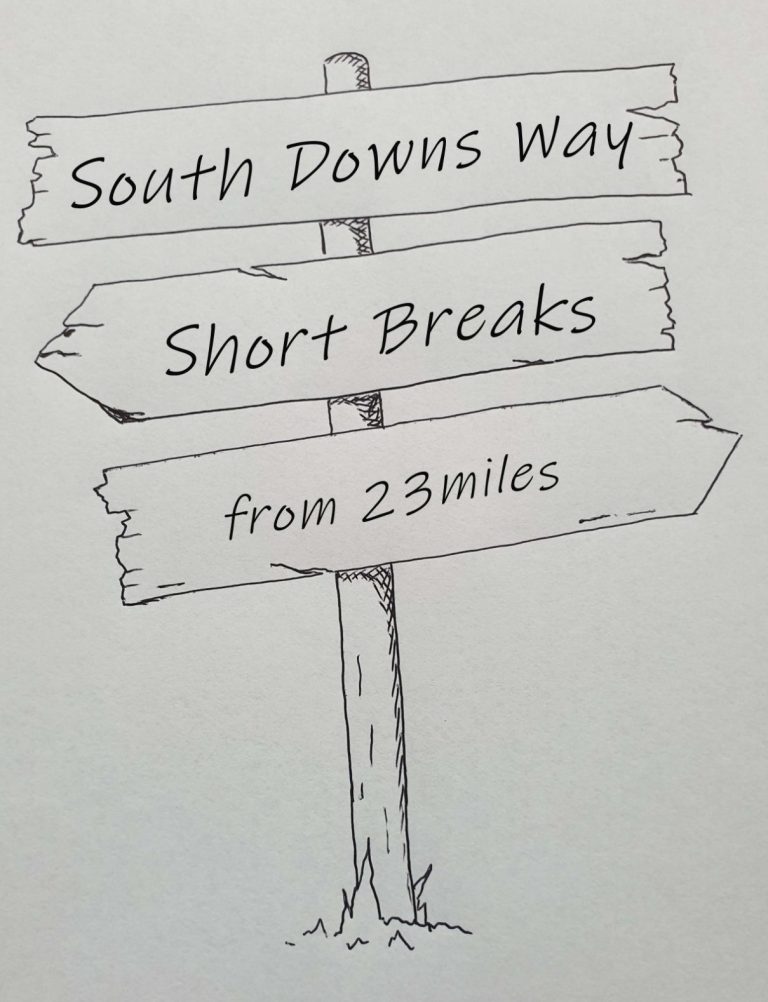 South Downs Way
Short Breaks
from 23miles